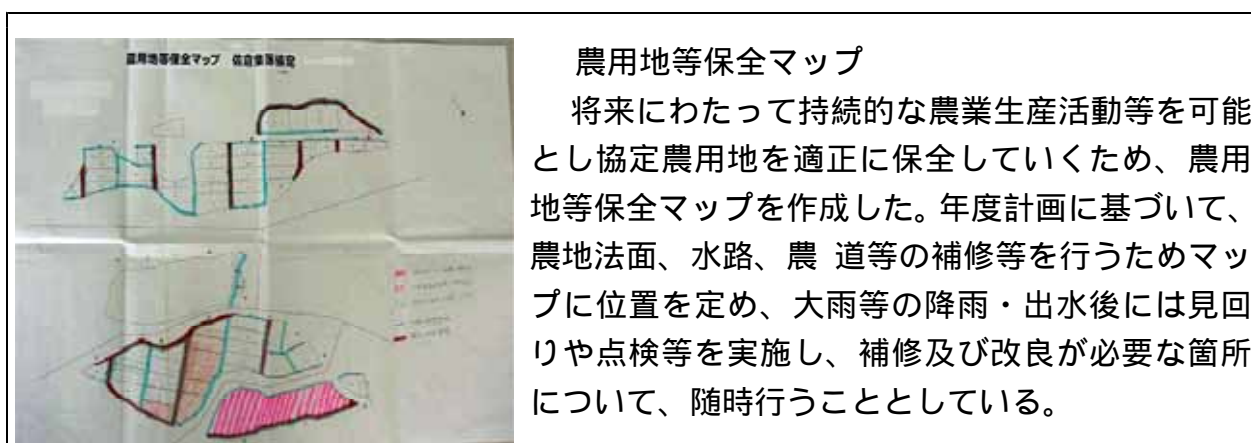 農用地等保全マップ 佐倉集落協定
農用地等保全マップ
将来にわたって持続的な農業生産活動等を可能
とし協定農用地を適正に保全していくため、農用
地等保全マップを作成した。年度計画に基づいて、
農地法面、水路、農 道等の補修等を行うためマッ
プに位置を定め、大雨等の降雨・出水後には見回
りや点検等を実施し、補修及び改良が必要な箇所
について、随時行うこととしている。